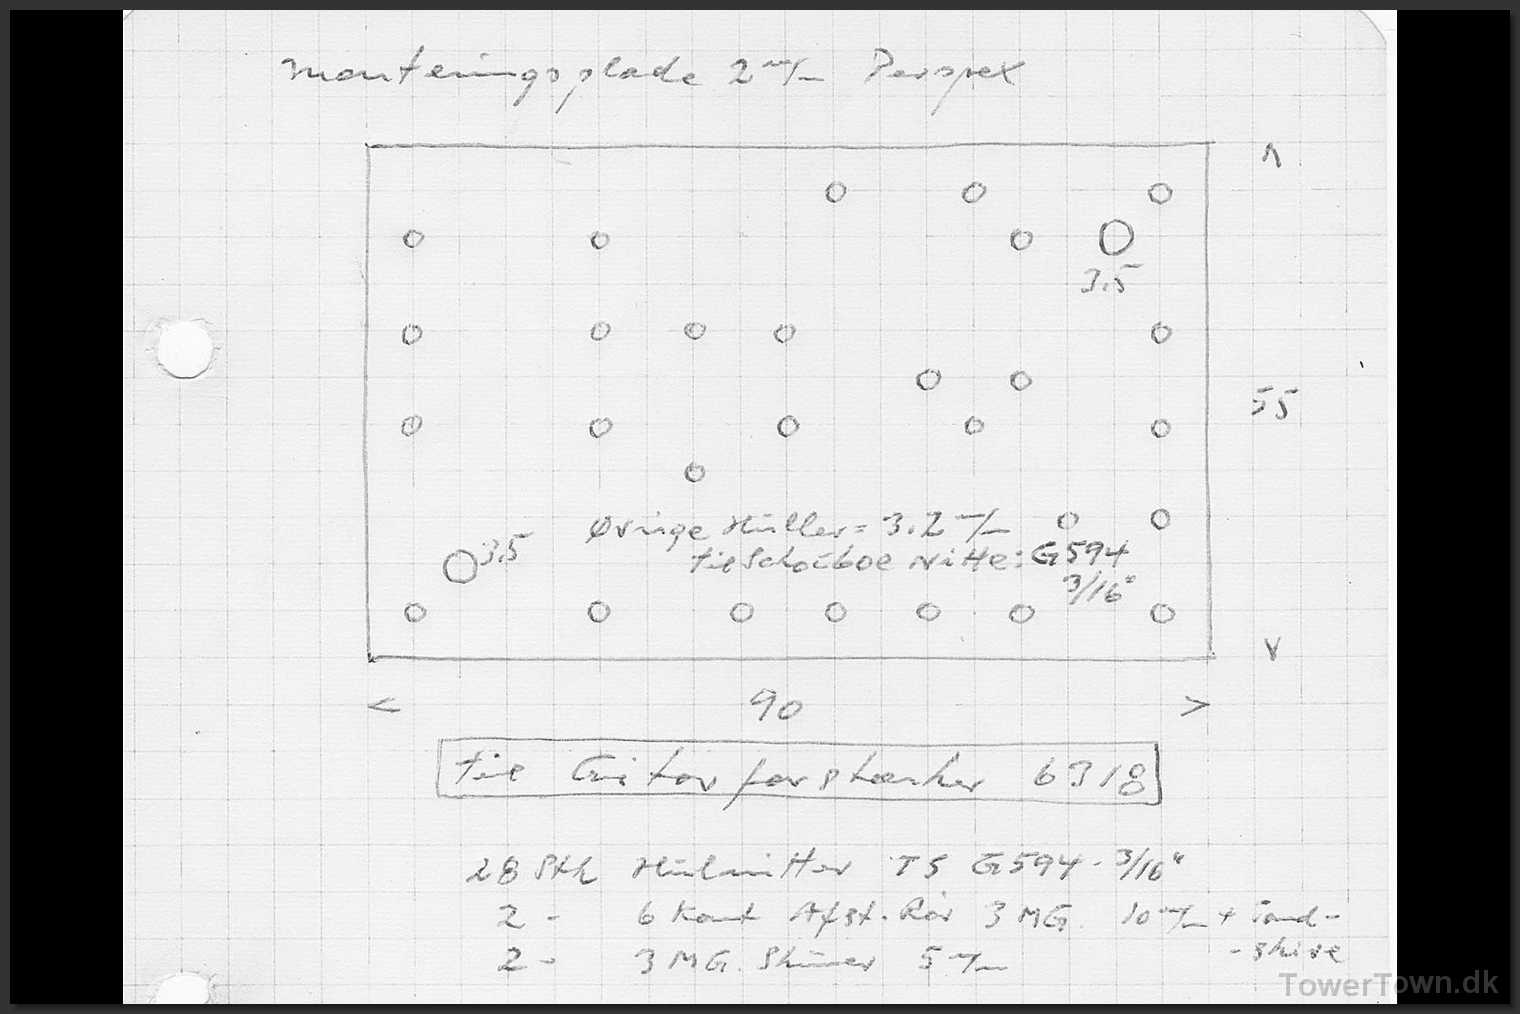 Monteringsplade 2 m/m Perspex
3.5
55
3.5
Øvrige Huller = 3.2 m/m
til Schoiboe Nitte: G594
3/16"
90
til Guitarforstærker 6318
28 Stk Hulnitter TS G594 - 3/16"
2 - 6 Kant Afst. Rör 3 MG. 10 m/m + Tand-
- skive
2 - 3 MG. Skruer 5 m/m
TowerTown.dk